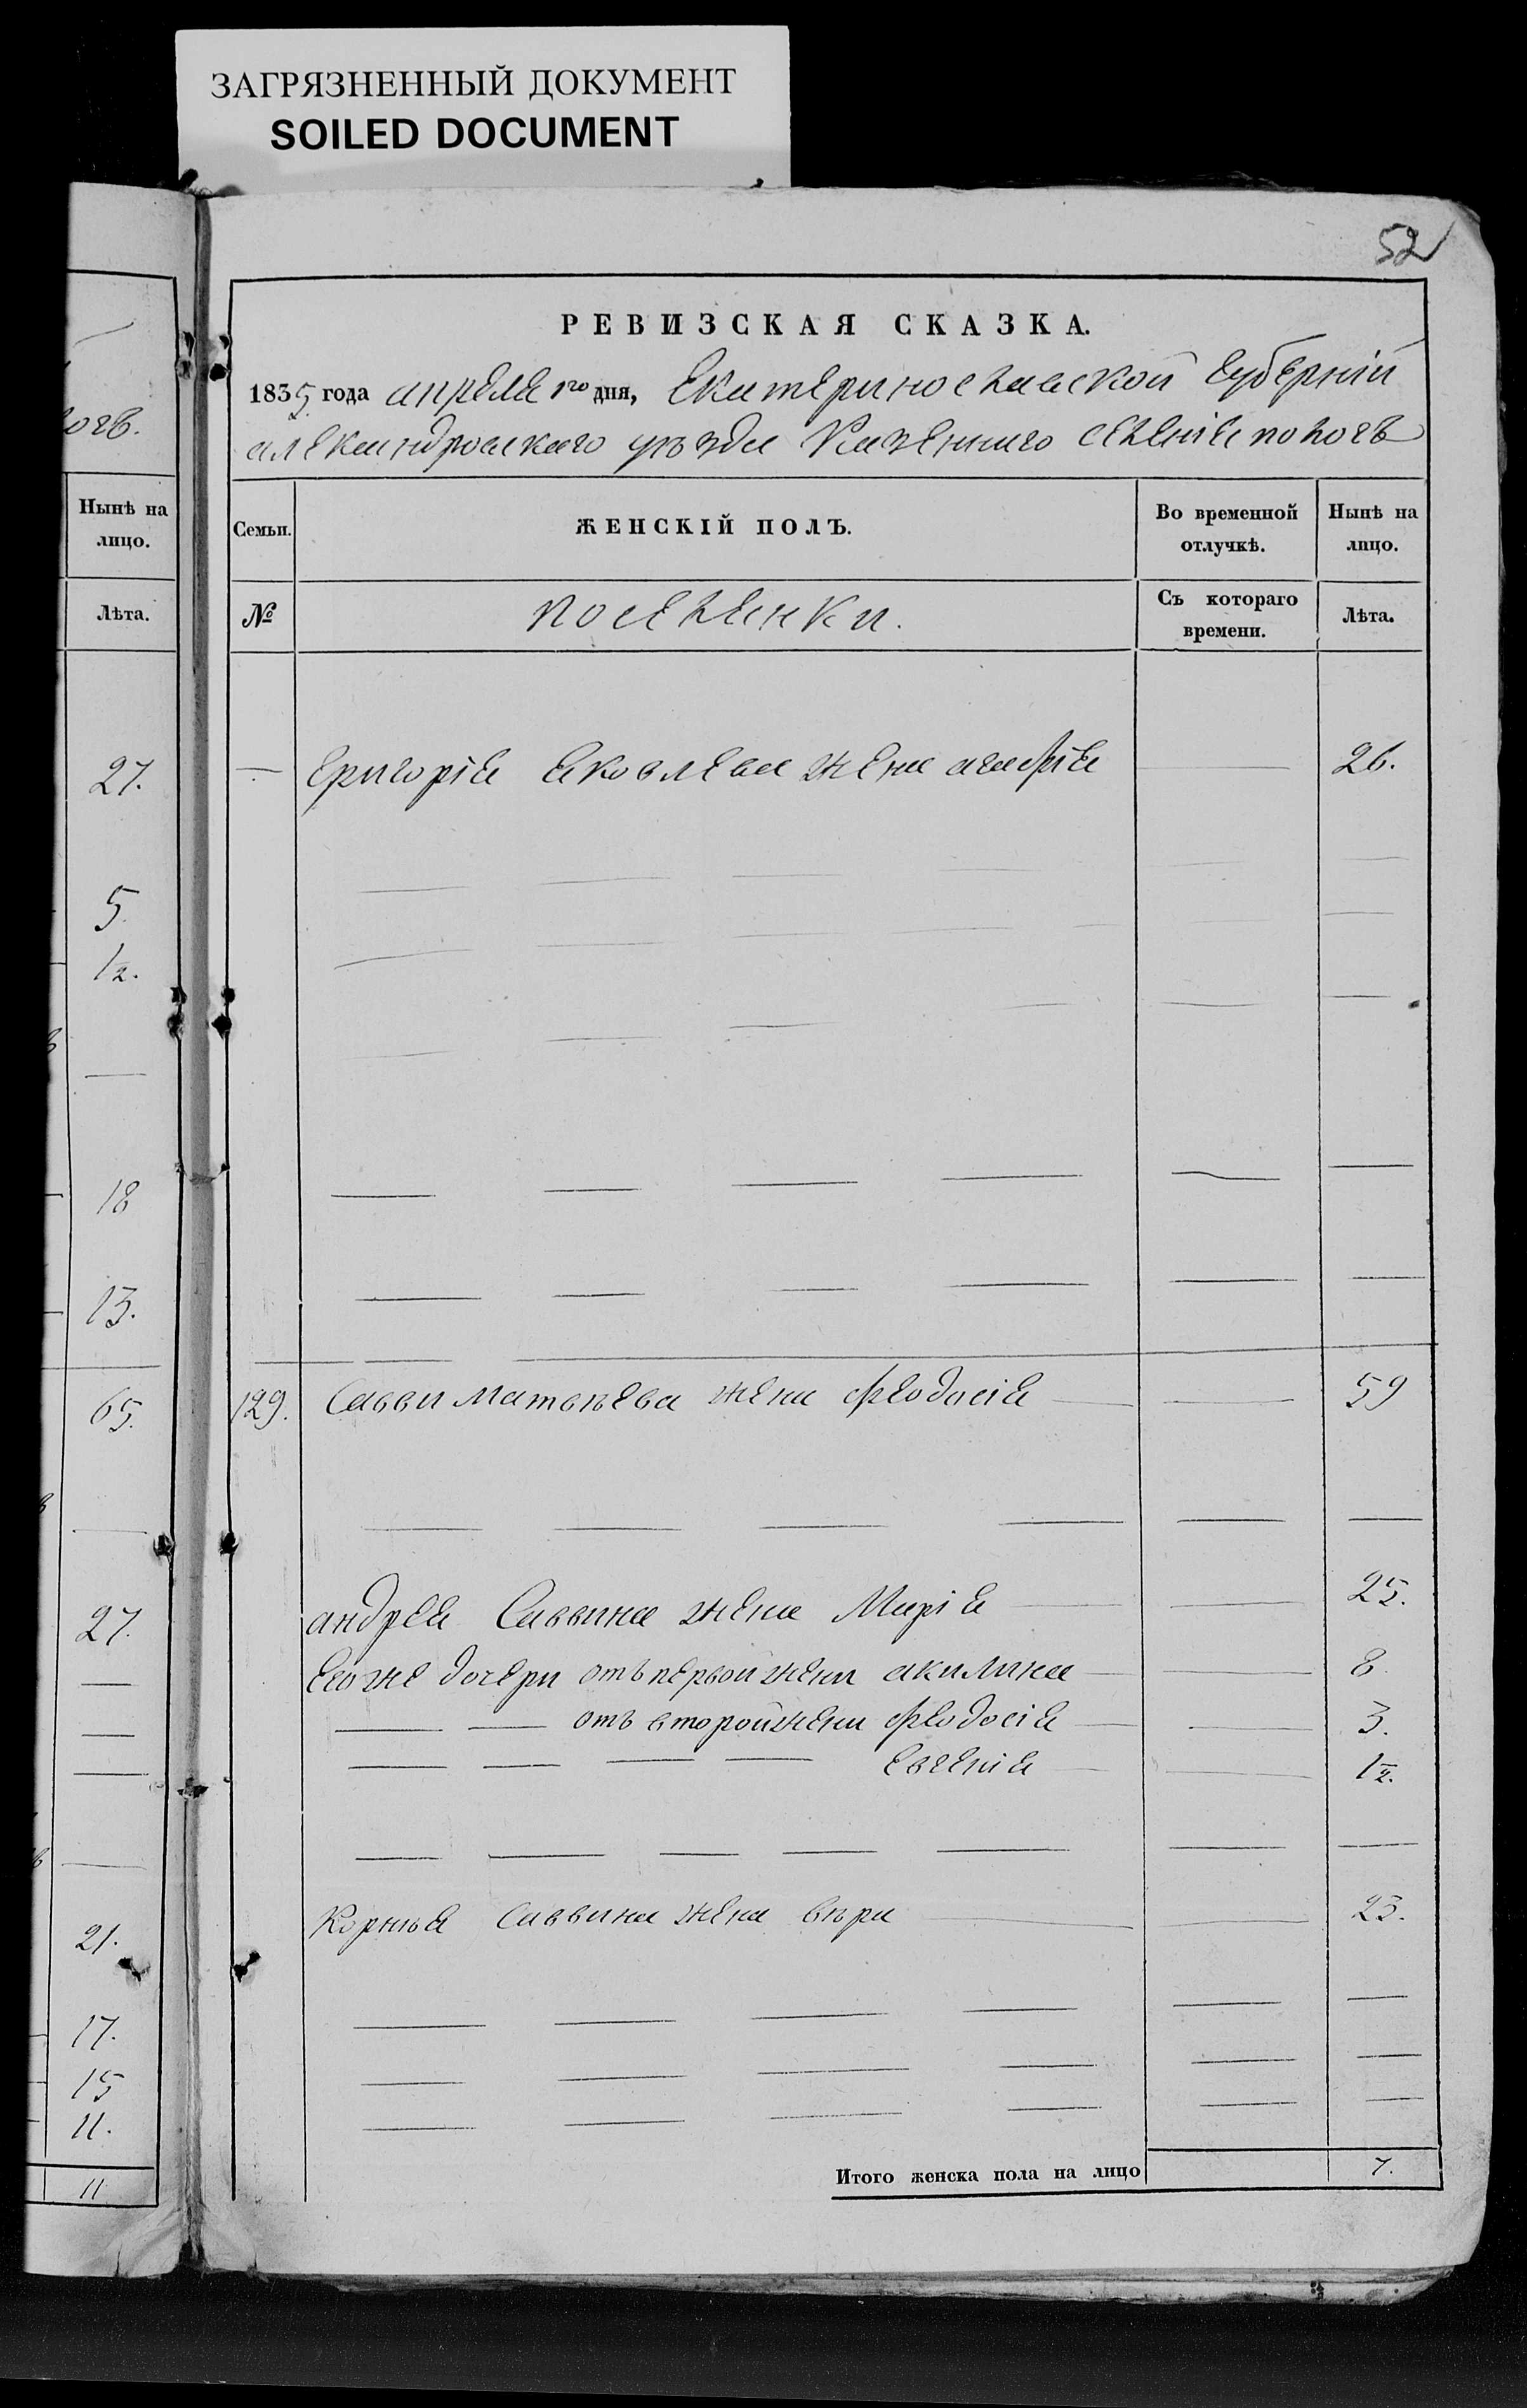 ЗАГРЯЗНЕННЫЙ ДОКУМЕНТ
SOILED DOCUMENT
52
РЕВИЗСКАЯ СКАЗКА.
1835 года апреля 1го дня, Екатеринославской Губерніи
александровскаго уѣзда Казеннаго селенія пологъ
Нынѣ на лицо.
Лѣта.
27.
5
1/2.
18
13.
65.
27.
21.
17.
15
11.
11
Семьи. ЖЕНСКІЙ ПОЛЪ. Во временной отлучкѣ. Нынѣ на лицо.
№ поселянки. Съ котораго времени. Лѣта.
Григорія Яковлева жена агафія 26.
129. Саввы Матвѣева жена Феодосія 59
андрея Саввина жена Марія 25.
Его же дочери отъ первой жены акилина 8
отъ второй жены Феодосія 3.
Евгенія 1/2.
Корнѣя Саввина жена вѣра 23.
Итого женска пола на лицо 7.